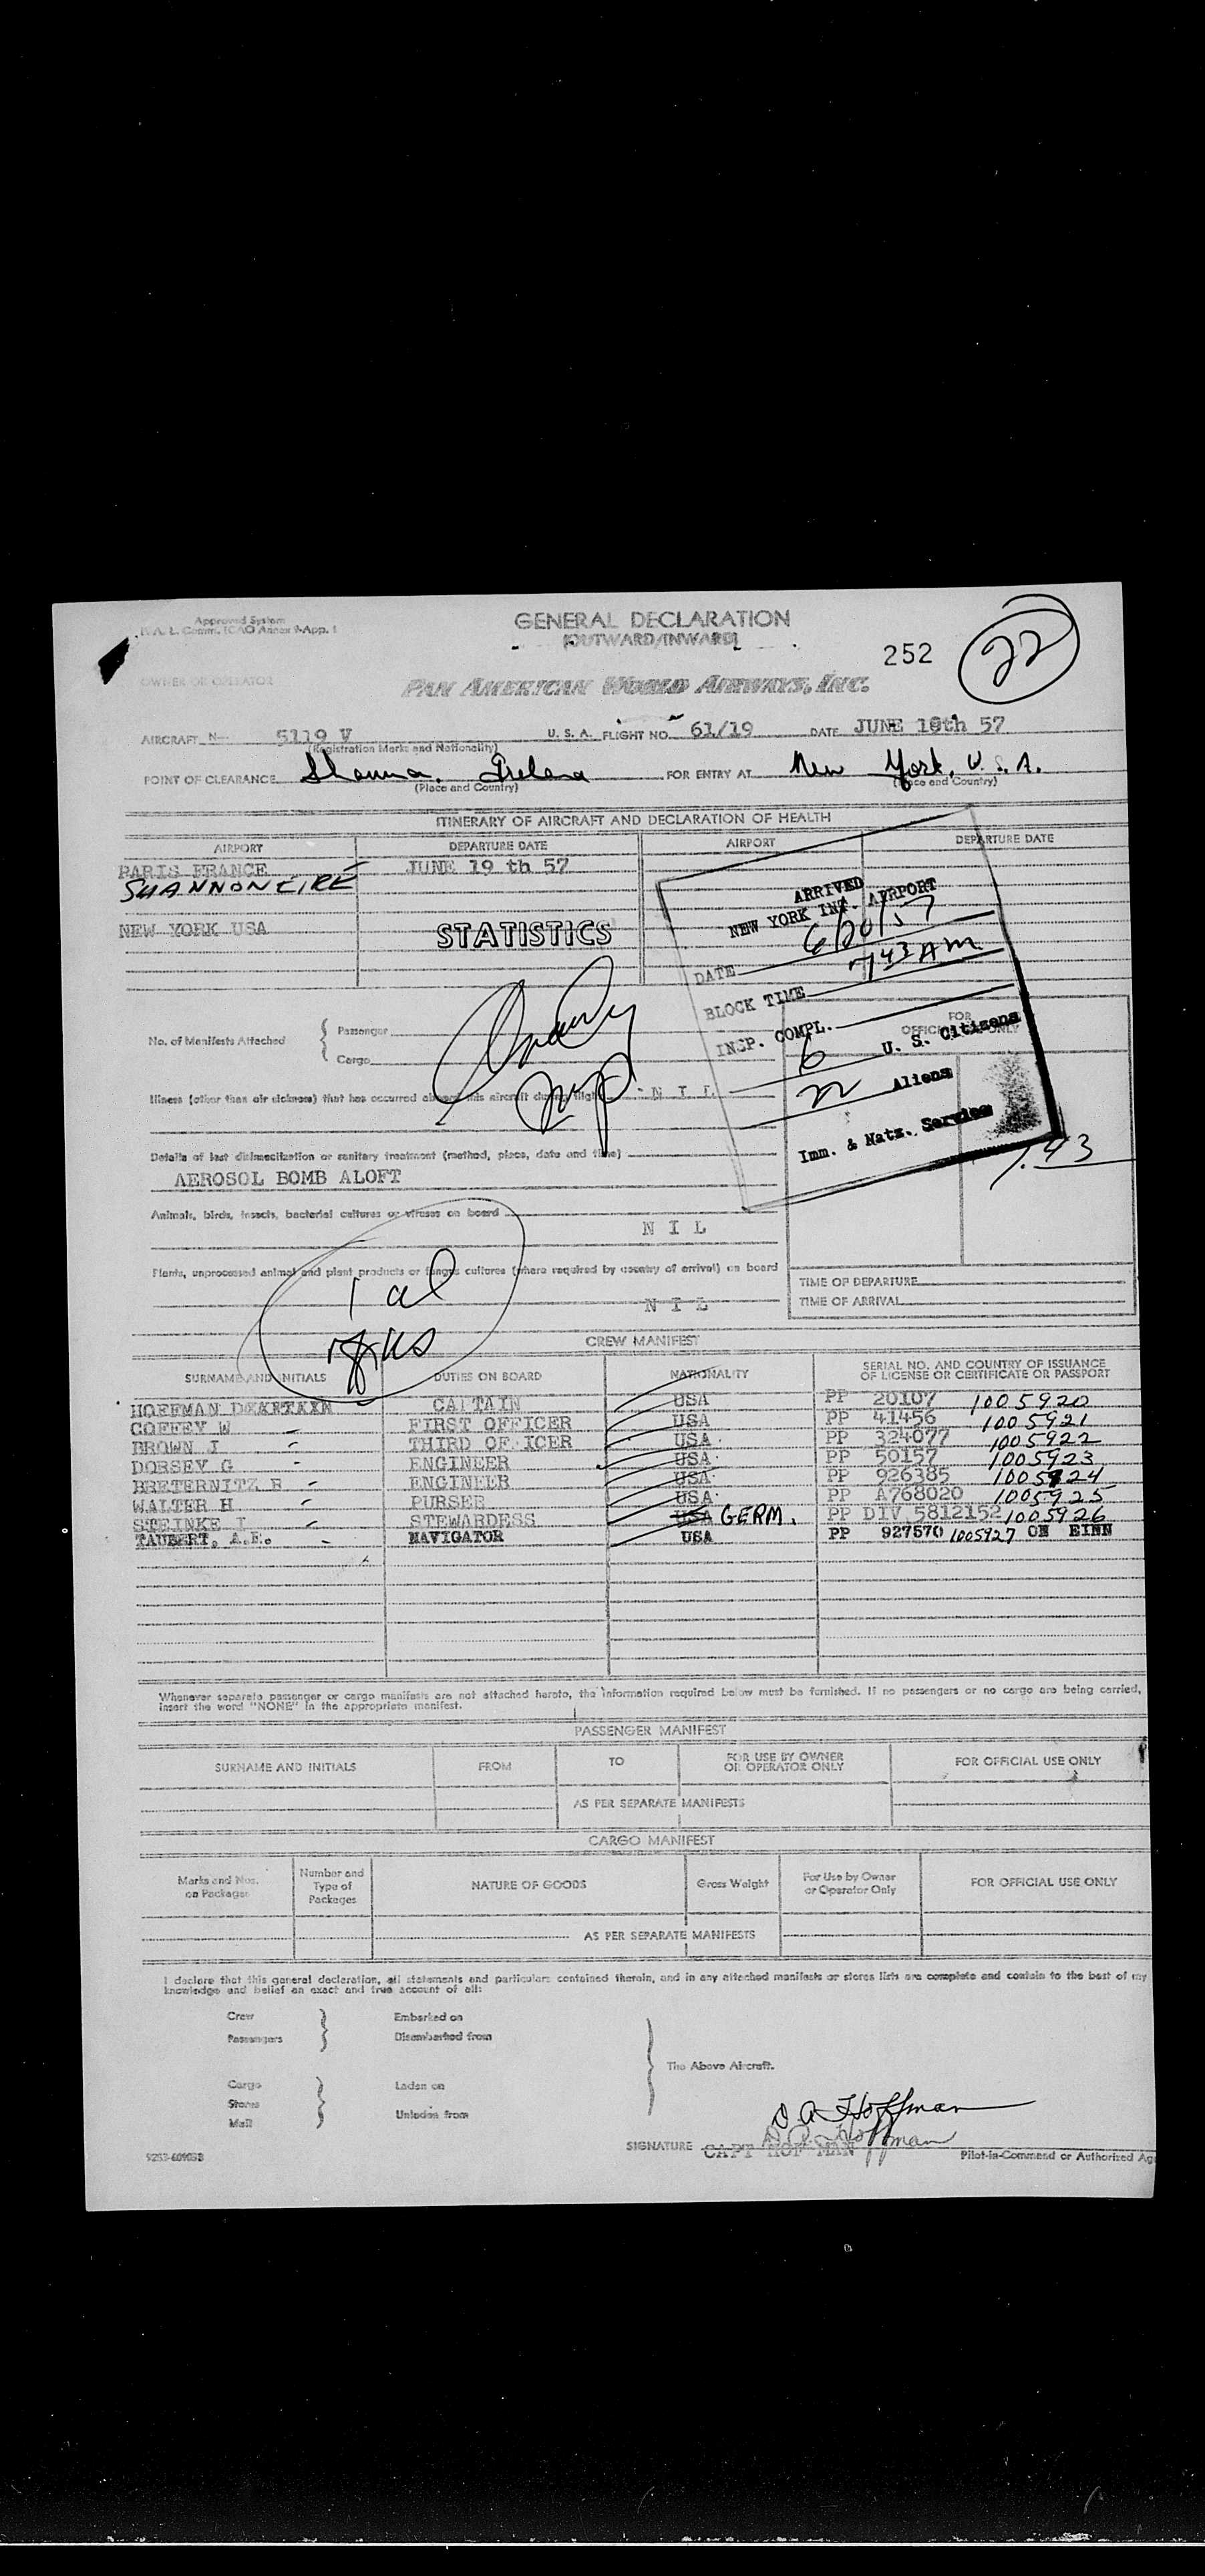 Approved System
I. A. L. Comm. ICAO Annex 9-App. 1
GENERAL DECLARATION
(OUTWARD/INWARD)
252
22
OWNER OR OPERATOR
PAN AMERICAN WORLD AIRWAYS, INC.
AIRCRAFT N- 5119 V U. S. A. FLIGHT NO. 61/19 DATE JUNE 19th 57
(Registration Marks and Nationality)
POINT OF CLEARANCE FOR ENTRY AT New York, U. S. A.
(Place and Country) (Place and Country)
ITINERARY OF AIRCRAFT AND DECLARATION OF HEALTH
AIRPORT DEPARTURE DATE AIRPORT DEPARTURE DATE
PARIS FRANCE JUNE 19 th 57
SHANNON EIRE
NEW YORK USA
STATISTICS
ARRIVED
NEW YORK INT. AIRPORT
DATE 6/20/57
BLOCK TIME 743 AM
INSP. COMPL.
6 U. S. Citizens
22 Aliens
Imm. & Natz. Service
FOR
OFFICIAL USE ONLY
7.43
No. of Manifests Attached
Passenger
Cargo
Illness (other than air sickness) that has occurred aboard this aircraft during flight N I L
Details of last disinsectization or sanitary treatment (method, place, date and time)
AEROSOL BOMB ALOFT
Animals, birds, insects, bacterial cultures or viruses on board
N I L
Plants, unprocessed animal and plant products or fungus cultures (where required by country of arrival) on board
N I L
1 al
TIME OF DEPARTURE
TIME OF ARRIVAL
CREW MANIFEST
SURNAME AND INITIALS DUTIES ON BOARD NATIONALITY SERIAL NO. AND COUNTRY OF ISSUANCE
OF LICENSE OR CERTIFICATE OR PASSPORT
HOFFMAN D CAPTAIN USA PP 20107 1005920
COFFEY W FIRST OFFICER USA PP 41456 1005921
BROWN J THIRD OFFICER USA PP 324077 1005922
DORSEY G ENGINEER USA PP 50157 1005923
BRETERNITZ B ENGINEER USA PP 926385 1005924
WALTER H PURSER USA PP A768020 1005925
STEINKE I STEWARDESS USA GERM. PP DIV 5812152 1005926
TAUBERT, A.F. NAVIGATOR USA PP 927570 1005927 ON EINN
Whenever separate passenger or cargo manifests are not attached hereto, the information required below must be furnished. If no passengers or no cargo are being carried,
insert the word "NONE" in the appropriate manifest.
PASSENGER MANIFEST
SURNAME AND INITIALS FROM TO FOR USE BY OWNER
OR OPERATOR ONLY FOR OFFICIAL USE ONLY
AS PER SEPARATE MANIFESTS
CARGO MANIFEST
Marks and Nos.
on Packages Number and
Type of
Packages NATURE OF GOODS Gross Weight For Use by Owner
or Operator Only FOR OFFICIAL USE ONLY
AS PER SEPARATE MANIFESTS
I declare that this general declaration, all statements and particulars contained therein, and in any attached manifests or stores lists are complete and contain to the best of my
knowledge and belief an exact and true account of all:
Crew Embarked on
Passengers Disembarked from
The Above Aircraft.
Cargo Laden on
Stores
Mail Unladen from
D A Hoffman
D. A. Hoffman
SIGNATURE CAPT HOF MAN
Pilot-in-Command or Authorized Ag